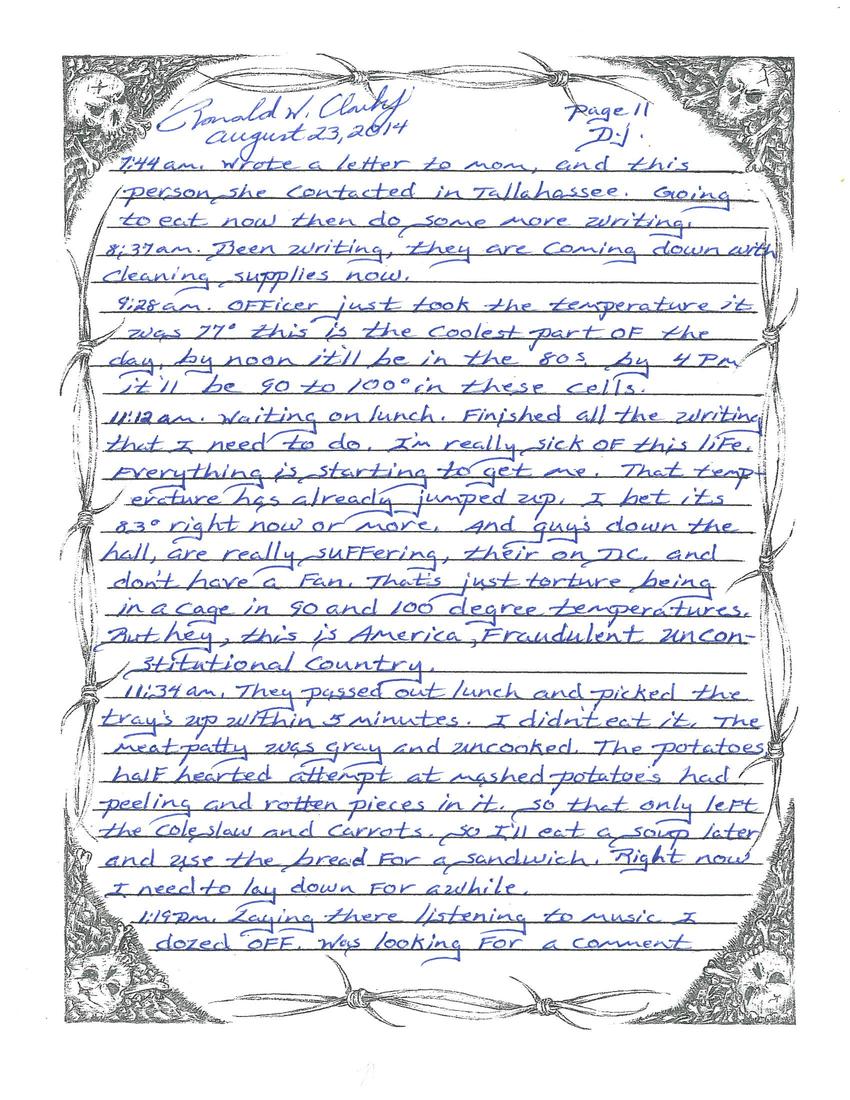 Ronald W. Clark Jr
Page 11
August 23, 2014
D.J.
7:44am. Wrote a letter to mom, and this
person she contacted in Tallahassee. Going
to eat now then do some more writing.
8:37am. Been writing, they are coming down with
cleaning supplies now.
9:28am. Officer just took the temperature it
was 77° this is the coolest part of the
day, by noon it'll be in the 80s. by 4 PM
it'll be 90 to 100° in these cells.
11:12am. Waiting on lunch. Finished all the writing
that I need to do. I'm really sick of this life.
Everything is starting to get me. That temp-
erature has already jumped up. I bet its
83° right now or more. And guy's down the
hall, are really suffering, their on DC. and
don't have a fan. That's just torture being
in a cage in 90 and 100 degree temperatures.
But hey, this is America, Fraudulent uncon-
stitutional Country.
11:34am. They passed out lunch and picked the
tray's up within 5 minutes. I didn't eat it. The
meat patty was gray and uncooked. The potatoes
half hearted attempt at mashed potatoe's had
peeling and rotten pieces in it. So that only left
the coleslaw and carrots. So I'll eat a soup later
and use the bread for a sandwich. Right now
I need to lay down for awhile.
1:19pm. Laying there listening to music I
dozed off. Was looking for a comment